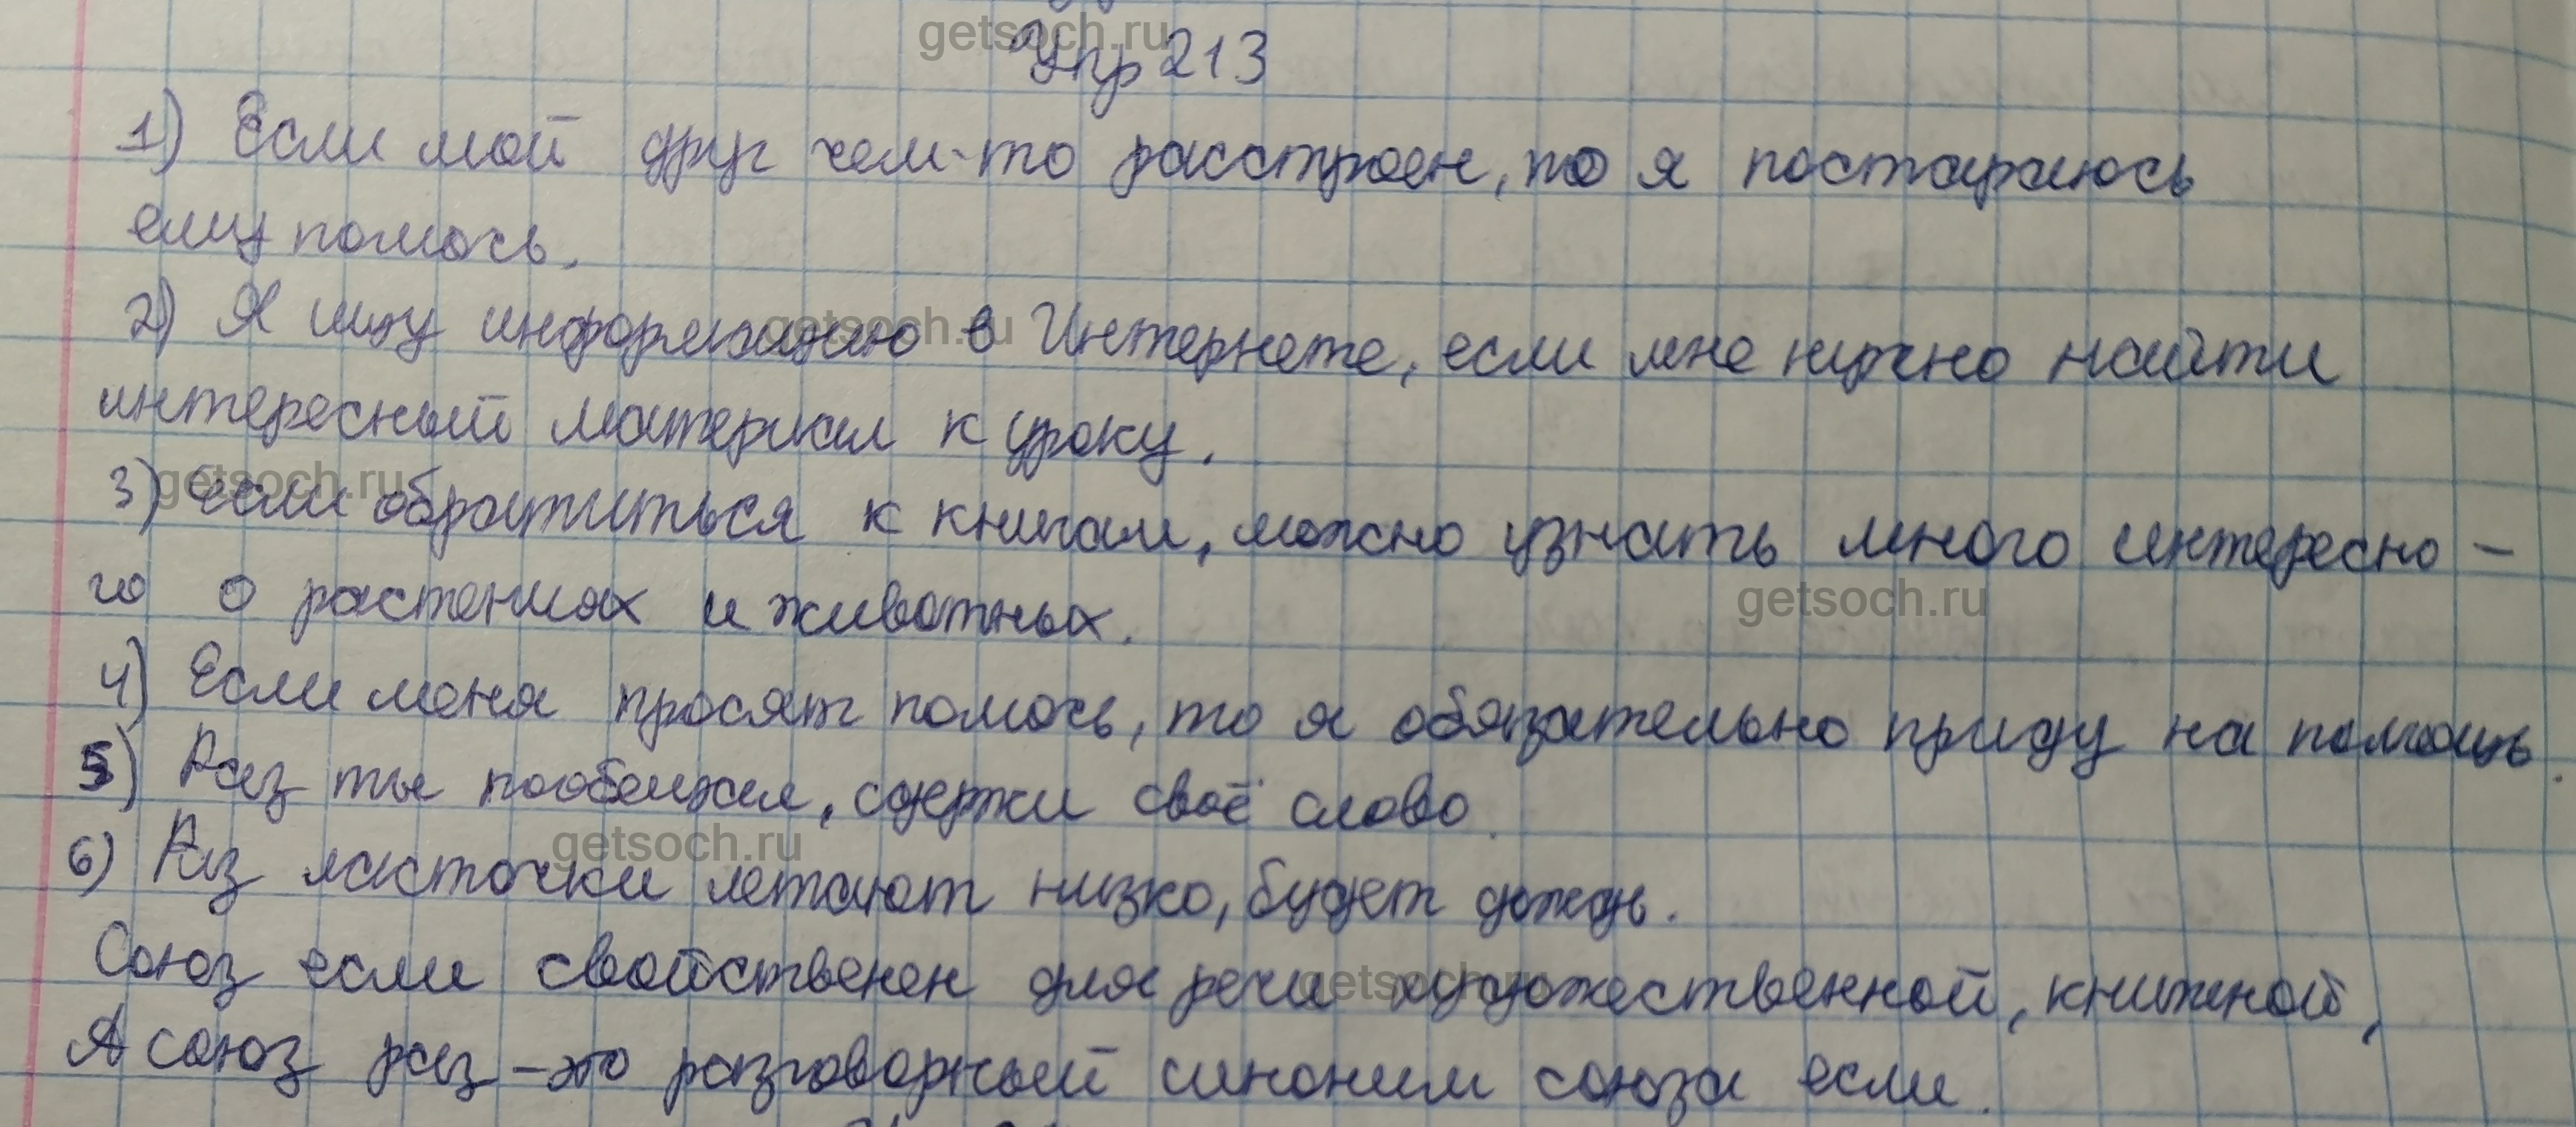 Упр 213
1) Если мой друг чем-то расстроен, то я постараюсь
ему помочь.
2) Я ищу информацию в Интернете, если мне нужно найти
интересный материал к уроку.
3) Если обратиться к книгам, можно узнать много интересно-
го о растениях и животных.
4) Если меня просят помочь, то я обязательно приду на помощь.
5) Раз ты пообещал, сдержи своё слово.
6) Раз ласточки летают низко, будет дождь.
Союз если свойственен для речи художественной, книжной,
А союз раз – это разговорный синоним союза если.
getsoch.ru
getsoch.ru
getsoch.ru
getsoch.ru
getsoch.ru
getsoch.ru